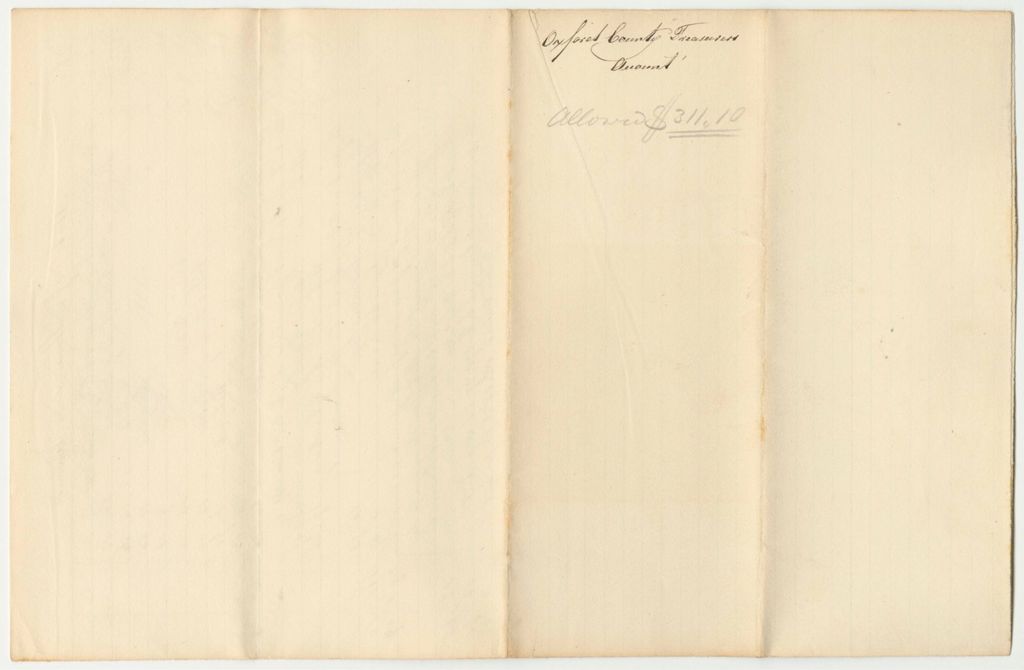 Oxford County Treasurers
Account
Allowed $311.10